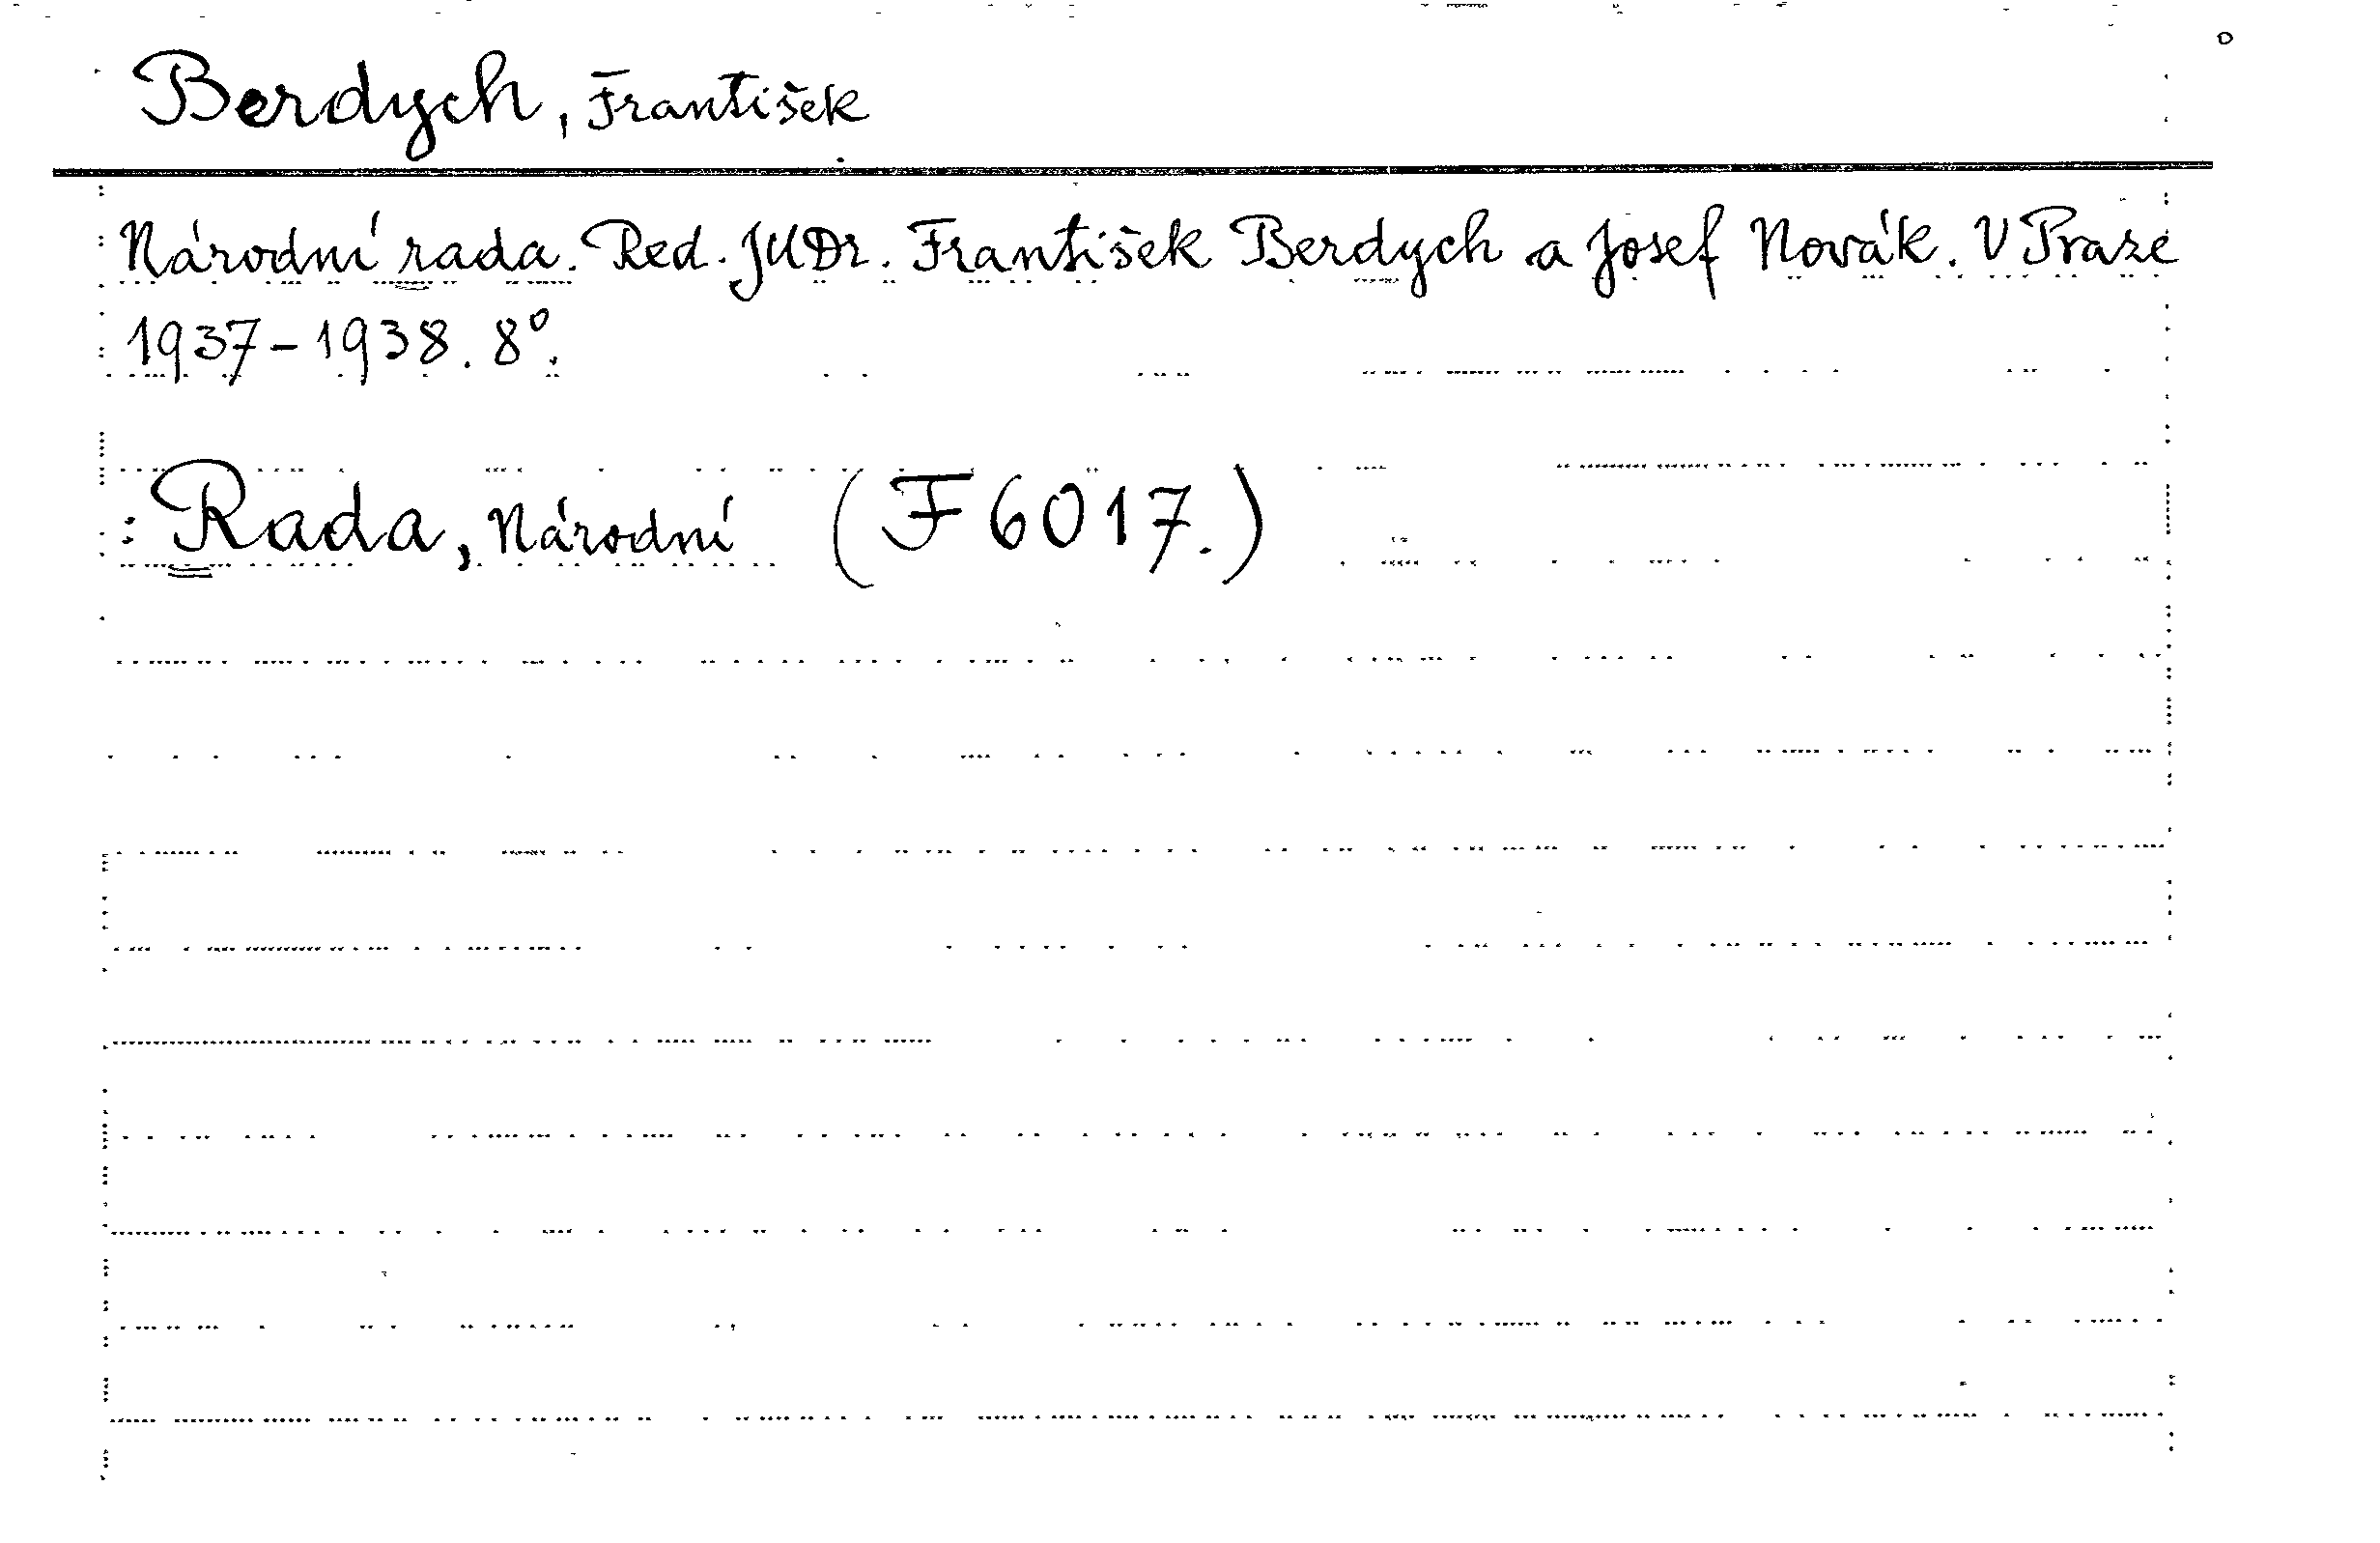 Berdych, František
Národní rada. Red. JUDr. František Berdych a Josef Novák. V Praze
1937-1938. 8°.
: Rada, Národní (F 6017.)